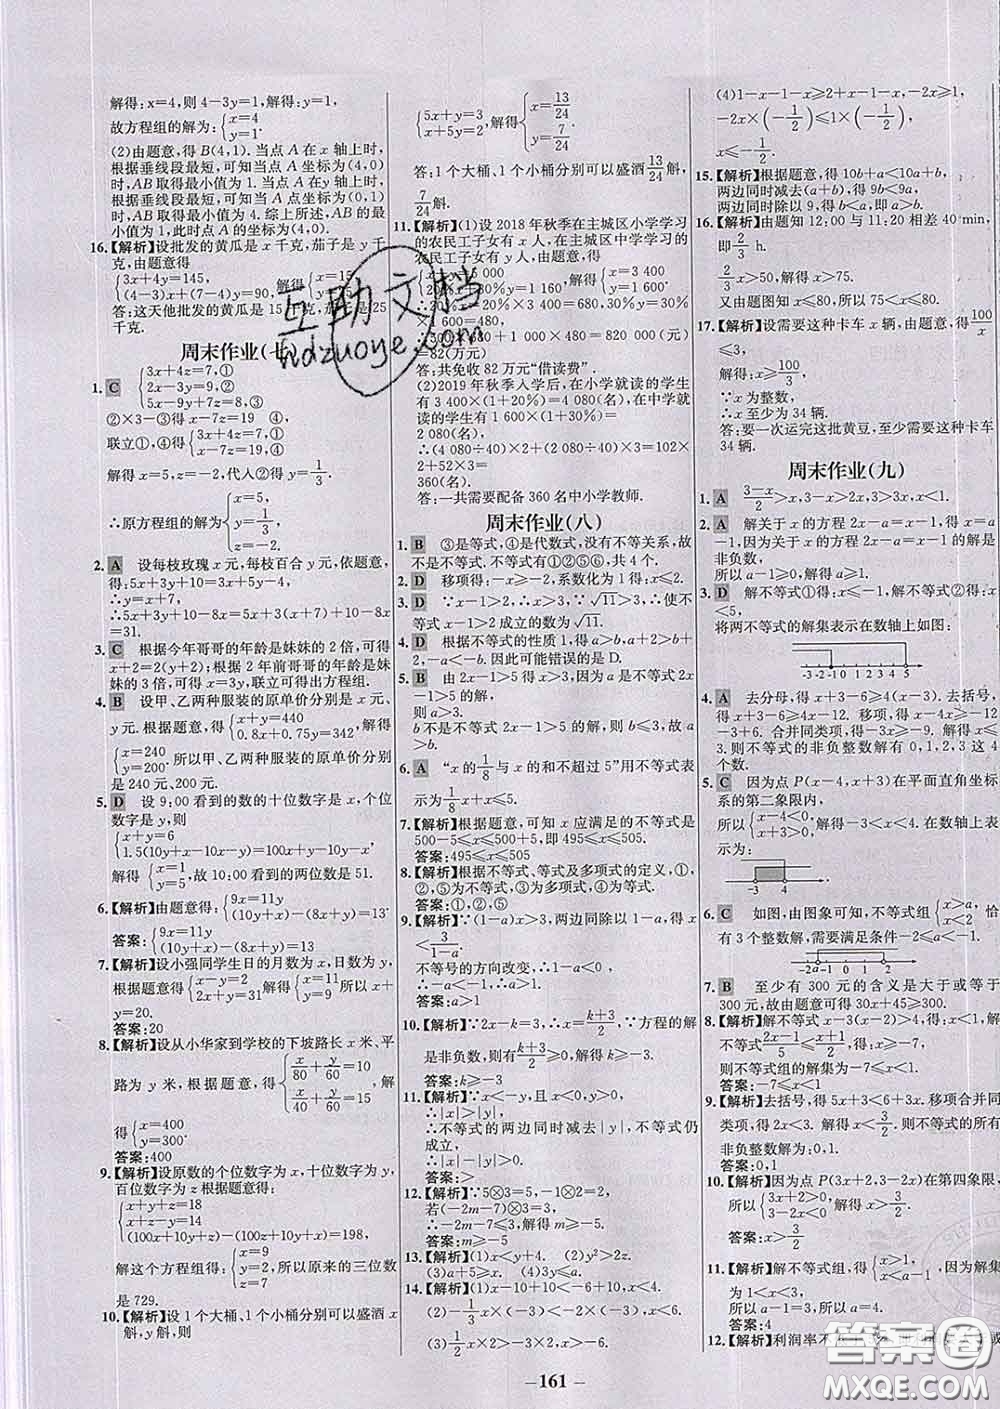 解得:x=4,则4-3y=1,解得:y=1.
故方程组的解为:{x=4 y=1.
(2)由题意,得B(4,1).当点A在x轴上时,
根据垂线段最短,可知当点A坐标为(4,0)
时,AB取得最小值为1;当点A在y轴上时,
根据垂线段最短,可知当点A坐标为(0,1)
时,AB取得最小值为4.综上所述,AB的最
小值为1,此时点A的坐标为(4,0).
16.【解析】设批发的黄瓜是x千克,茄子是y千
克,由题意得
{3x+4y=145, (4-3)x+(7-4)y=90, 解得{x=15,
答:这天他批发的黄瓜是15千克,茄子是25
千克.
周末作业(七)
1. C {3x+4z=7,① 2x-3y=9,② 5x-9y+7z=8,③
②×3-③得x-7z=19 ④,
联立①,④得{3x+4z=7, x-7z=19,
解得x=5,z=-2,代入②得y=1/3.
∴原方程组的解为{x=5, y=1/3, z=-2.
2. A 设每枝玫瑰x元,每枝百合y元.依题意
得:5x+3y+10=4x+4y+4,
∴y=x+6,
∴5x+3y+10-8x=5x+3(x+6)+10-8x
=31.
3. C 根据今年哥哥是妹妹的2倍,可得
x+2=2(y+2);根据2年前哥哥的年龄是妹
妹的3倍,可得x=3y,联立可得出方程组.
4. B 设甲、乙两种服装的原单价分别是x元、
y元.根据题意,得{x+y=440 0.8x+0.75y=342, 解得
{x=240 y=200 .所以甲、乙两种服装的原单价分别
是240元、200元.
5. D 设9:00看到的数的十位数字是x,个位
数字是y,则
{x+y=6 1.5(10y+x-10x-y)=100x+y-10y-x
解得{x=1 y=5,故10:00看到的两位数是51.
6.【解析】由题意得:{9x=11y (10y+x)-(8x+y)=13.
答案:{9x=11y (10y+x)-(8x+y)=13
7.【解析】设小强同学生日的月数为x,日数为y,
根据题意得{x-y=2 2x+y=31 解得{
y=20.
答案:20
8.【解析】设从小华家到学校的下坡路长x米、平
路为y米,根据题意得:{x/80+y/60=10 x/40+y/60=15 ,解
得{x=400 y=300.
答案:400
9.【解析】设原数的个位数字为x,十位数字为y,
百位数字为z根据题意得:
{x+y+z=18 x+y-z=4 (100x+10y+z)-(100z+10y+x)=198,
解这个方程组得:{x=9 y=2 z=7 所以原来的三位数
是729.
10.【解析】设1个大桶、1个小桶分别可以盛酒x
斛,y斛,则
{5x+y=3, x+5y=2, 解得{x=13/24 y=7/24.
答:1个大桶、1个小桶分别可以盛酒13/24斛、
7/24斛.
11.【解析】(1)设2018年秋季在主城区小学学习
的农民工子女有x人,在主城区中学学习的
农民工子女有y人,由题意,得
解得{x=3 400 y=1 600.
∴1 000×680+2 000×480... =820 000(元)
=82(万元)
答:共免收82万元“借读费”.
(2)2019年秋季入学后,在小学就读的学生
有3 400×(1+20%)=4 080(名),在中学就
读的学生有1 600×(1+30%)=
2 080(名).
∴(4 080÷40)×2+(2 080÷40)×3=102×2
+52×3=360(名)
答:一共需要配备360名中小学教师.
周末作业(八)
1. B ③是等式,④是代数式,没有不等关系,故
不是不等式.不等式有①②⑤⑥,共4个.
2. D 移项得:-x≥-2,系数化为1得:x≤2.
3. D ∵x-1>2,∴x>3,∵√11>3,∴使不
等式x-1>2成立的数为√11.
4. D 根据不等式的性质1,得:a+2>b+
2,-a<-b.因此可能错误的是D.
5. B 由2x-1>5得x>3;因为a是不等式
2x-1>5的解,
则a>3.
b不是不等式2x-1>5的解,则b≤3,故a
>b.
6. A “x的1/8与x的和不超过5”用不等式表
示为1/8x+x≤5.
7.【解析】根据题意,可知x应满足的不等式是
500-5≤x≤500+5,即495≤x≤505.
答案:495≤x≤505
8.【解析】根据不等式、等式及多项式的定义,①,
②,⑤为不等式;③为等式;④为多项式.
答案:①,②,⑤
9.【解析】∵(1-a)x>3,两边同除以1-a,得x
<3/(1-a),
不等号的方向改变,∴1-a<0 ,
∴-a<-1,∴a>1.
答案:a>1
10.【解析】∵2x-k=3,∴x=(k+3)/2,∵方程的解
是非负数,则有(k+3)/2≥0,解得k≥-3.
答案:k≥-3
11.【解析】∵x<-y,且x<0,y>0,
∴|x|>|y|,
∴不等式的两边同时减去|y|,不等式仍
成立,
∴|x|-|y|>0.
答案:>
12.【解析】∵5⊗3=5,-1⊗2=2,
若(-2m-7)⊗3=3,
∴-2m-7≤3,解得m≥-5.
答案:m≥-5
13.【解析】(1)x<y+4. (2)y²>2z.
(3)a+5≥1. (4)3y≤0.
14.【解析】(1)x-10+10<-6+10,x<4.
(3)1/2x×2>-3×2,x>-6.
(4)1-x-1-x≥2+x-1-x,-2x≥1,
-2x×(-1/2)≤1×(-1/2),
x≤-1/2.
15.【解析】根据题意,得10b+a<10a+b,
两边同时减去(a+b),得9b<9a,
两边同时除以9,得b<a,即a>b.
16.【解析】由题知12:00与11:20相差40 min,
即2/3 h.
2/3x>50,解得x>75.
又由题图知x≤80,所以75<x≤80.
17.【解析】设需要这种卡车x辆,由题意,得100/x
≤3.
解得:x≥100/3,
∵x为整数,
∴x至少为34辆.
答:要一次运完这批黄豆,至少需要这种卡车
34辆.
周末作业(九)
1. A (3-x)/2>x,3-x>2x,3>3x,x<1.
2. A 解关于x的方程2x-a=x-1,得x=a
-1,因为关于x的方程2x-a=x-1的解是
非负数,
所以a-1≥0,解得a≥1.
3. D 解不等式①得:x≤-1,解不等式②得:x
<5,
将两不等式的解集表示在数轴上如图:
-3 -2 -1 0 1 2 3 4 5
4. A 去分母,得x+3-6≥4(x-3),去括号,
得x+3-6≥4x-12. 移项,得x-4x≥-12
-3+6.合并同类项,得-3x≥-9.解得x≤
3.则不等式的非负整数解有0,1,2,3这4
个数.
5. C 因为点P(x-4,x+3)在平面直角坐标
系的第二象限内,
所以{x-4<0 x+3>0, 解得:-3<x<4.在数轴上表
示为:
-3 4
6. C 如图,由图象可知,不等式组{x>a, x<2 恰
有3个整数解,需要满足条件-2≤a<-1.
-2 a -1 0 1 2
7. B 至少有300元的含义是大于或等于
300元,故由题意可得30x+45≥300.
8.【解析】解不等式x-3(x-2)>4,得:x<1,解
不等式(2x-1)/5≤(x+1)/2,得:x≥-7,
则不等式组的解集为-7≤x<1.
答案:-7≤x<1
9.【解析】去括号,得5x+3<6+3x.移项合并同
类项,得2x<3.解得x<3/2.所以不等式的
非负整数解为0,1.
答案:0,1
10.【解析】因为点P(3x+2,3-2x)在第四象限,
所以{3x+2>0, 3-2x<0, 解得x>3/2.
答案:x>3/2
11.【解析】解不等式组,得{x>1, x<a-1 ,因为解集
为1<x<3,
所以a-1=3,所以a=4.
答案:4
12.【解析】利润率不
- 161 -
互助文档
hdzuoye.com
答案圈
MXQE.COM